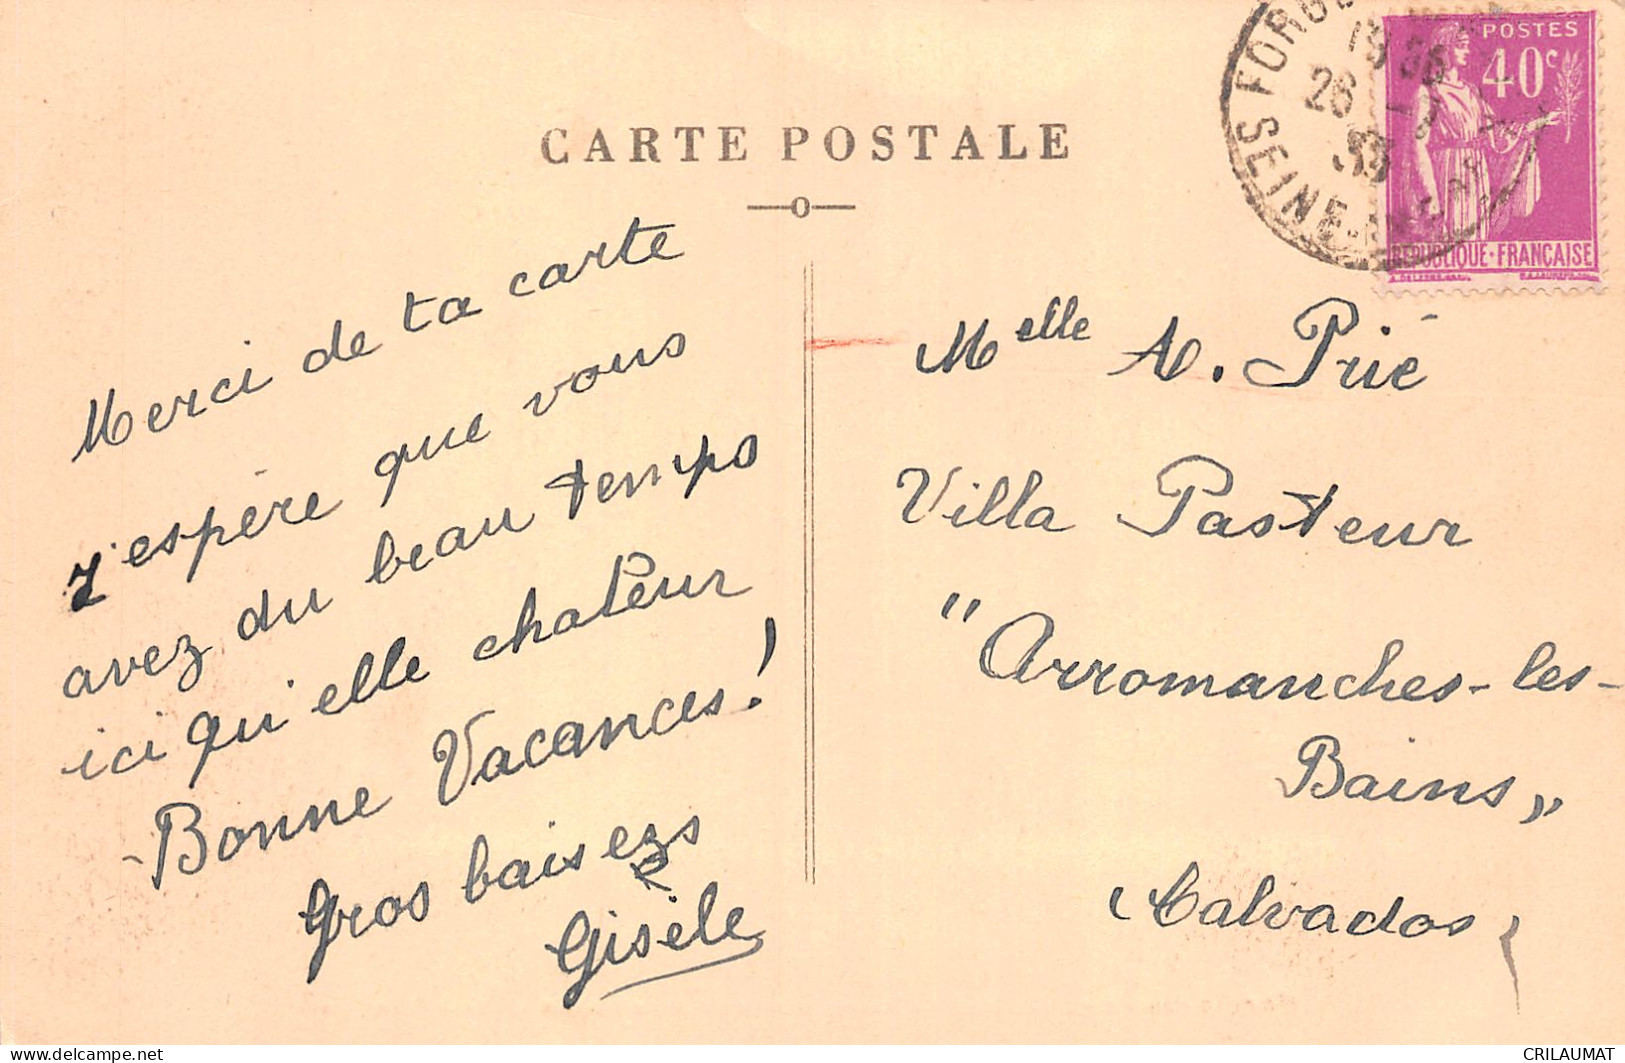 CARTE POSTALE
Merci de ta carte
J'espère que vous
avez du beau temps
ici qu'elle chaleur
Bonne Vacances!
Gros baisers
Gisèle
POSTES
40c
REPUBLIQUE·FRANÇAISE
26
SEINE
Melle A. Prié
Villa Pasteur
"Arromanches-les-
Bains"
Calvados
CRILAUMAT